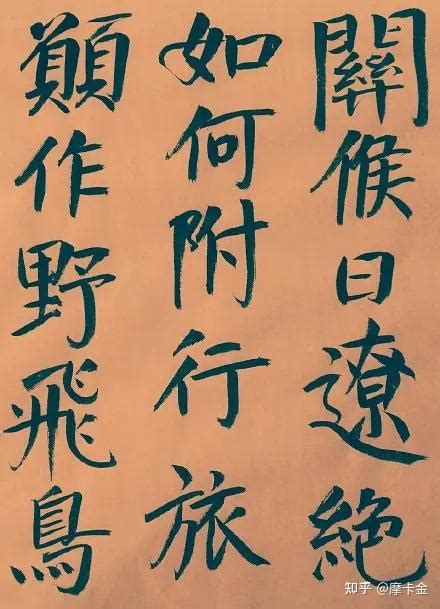 關候日遼絕
如何附行旅
願作野飛鳥
知乎 @摩卡金